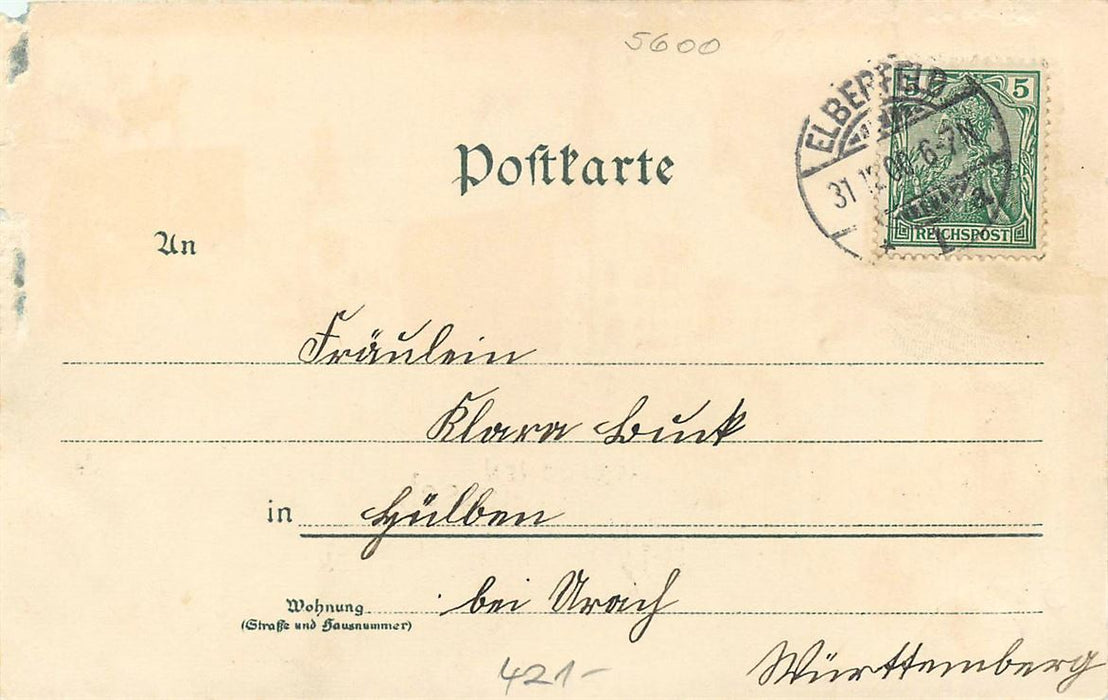 5600
5 5
REICHSPOST
ELBERFELD
31 12 00 6-7N
* 1 a
Postkarte
An
Fräulein
Klara Buck
in Hülben
Wohnung bei Urach
(Straße und Hausnummer)
Württemberg
421-